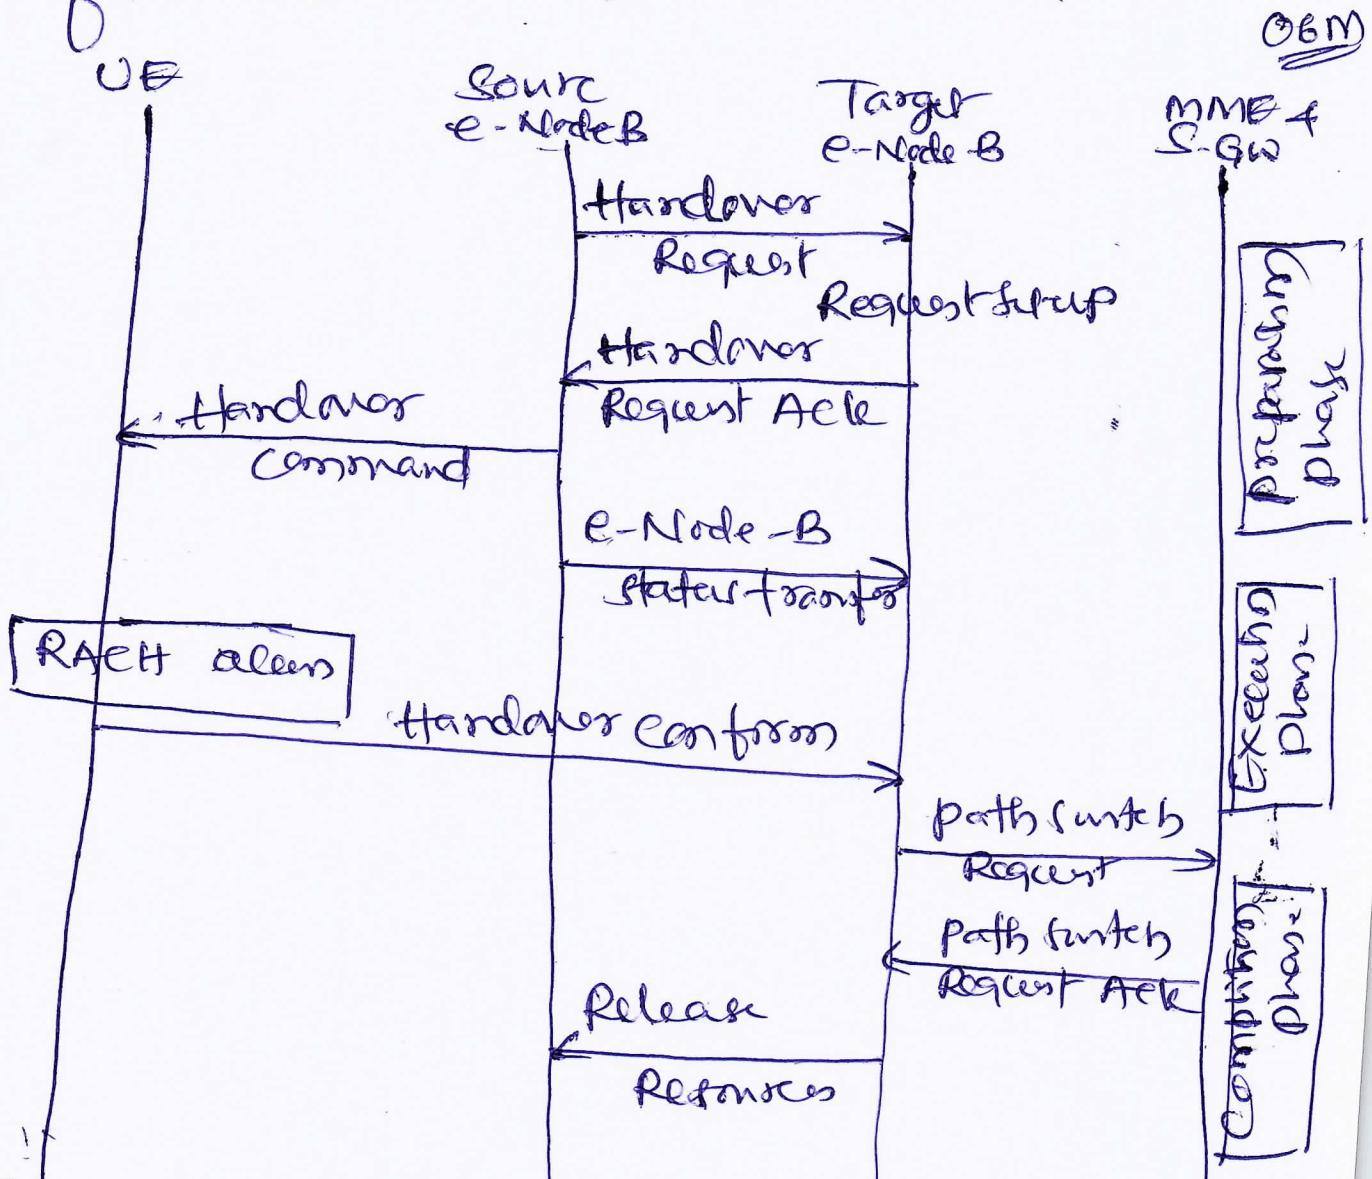 06M
UE
Sourc
e-NodeB
Target
e-Node-B
MME &
S-GW
Handover
Request
Request Setup
Handover
Request Ack
Handover
Command
e-Node-B
Status transfer
RACH
Handover Confirm
Path Switch
Request
Path Switch
Request Ack
Release
Resources
Preparation
Phase
Execution
Phase
Completion
Phase